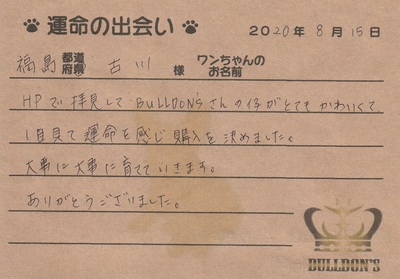 運命の出会い
2020年 8月 15日
福島 都道府県 古川 様 ワンちゃんのお名前
HPで拝見して BULLDON'Sさんの仔がとてもかわいくて
1目見て運命を感じ購入を決めました。
大事に大事に育てていきます。
ありがとうございました。
BULLDON'S